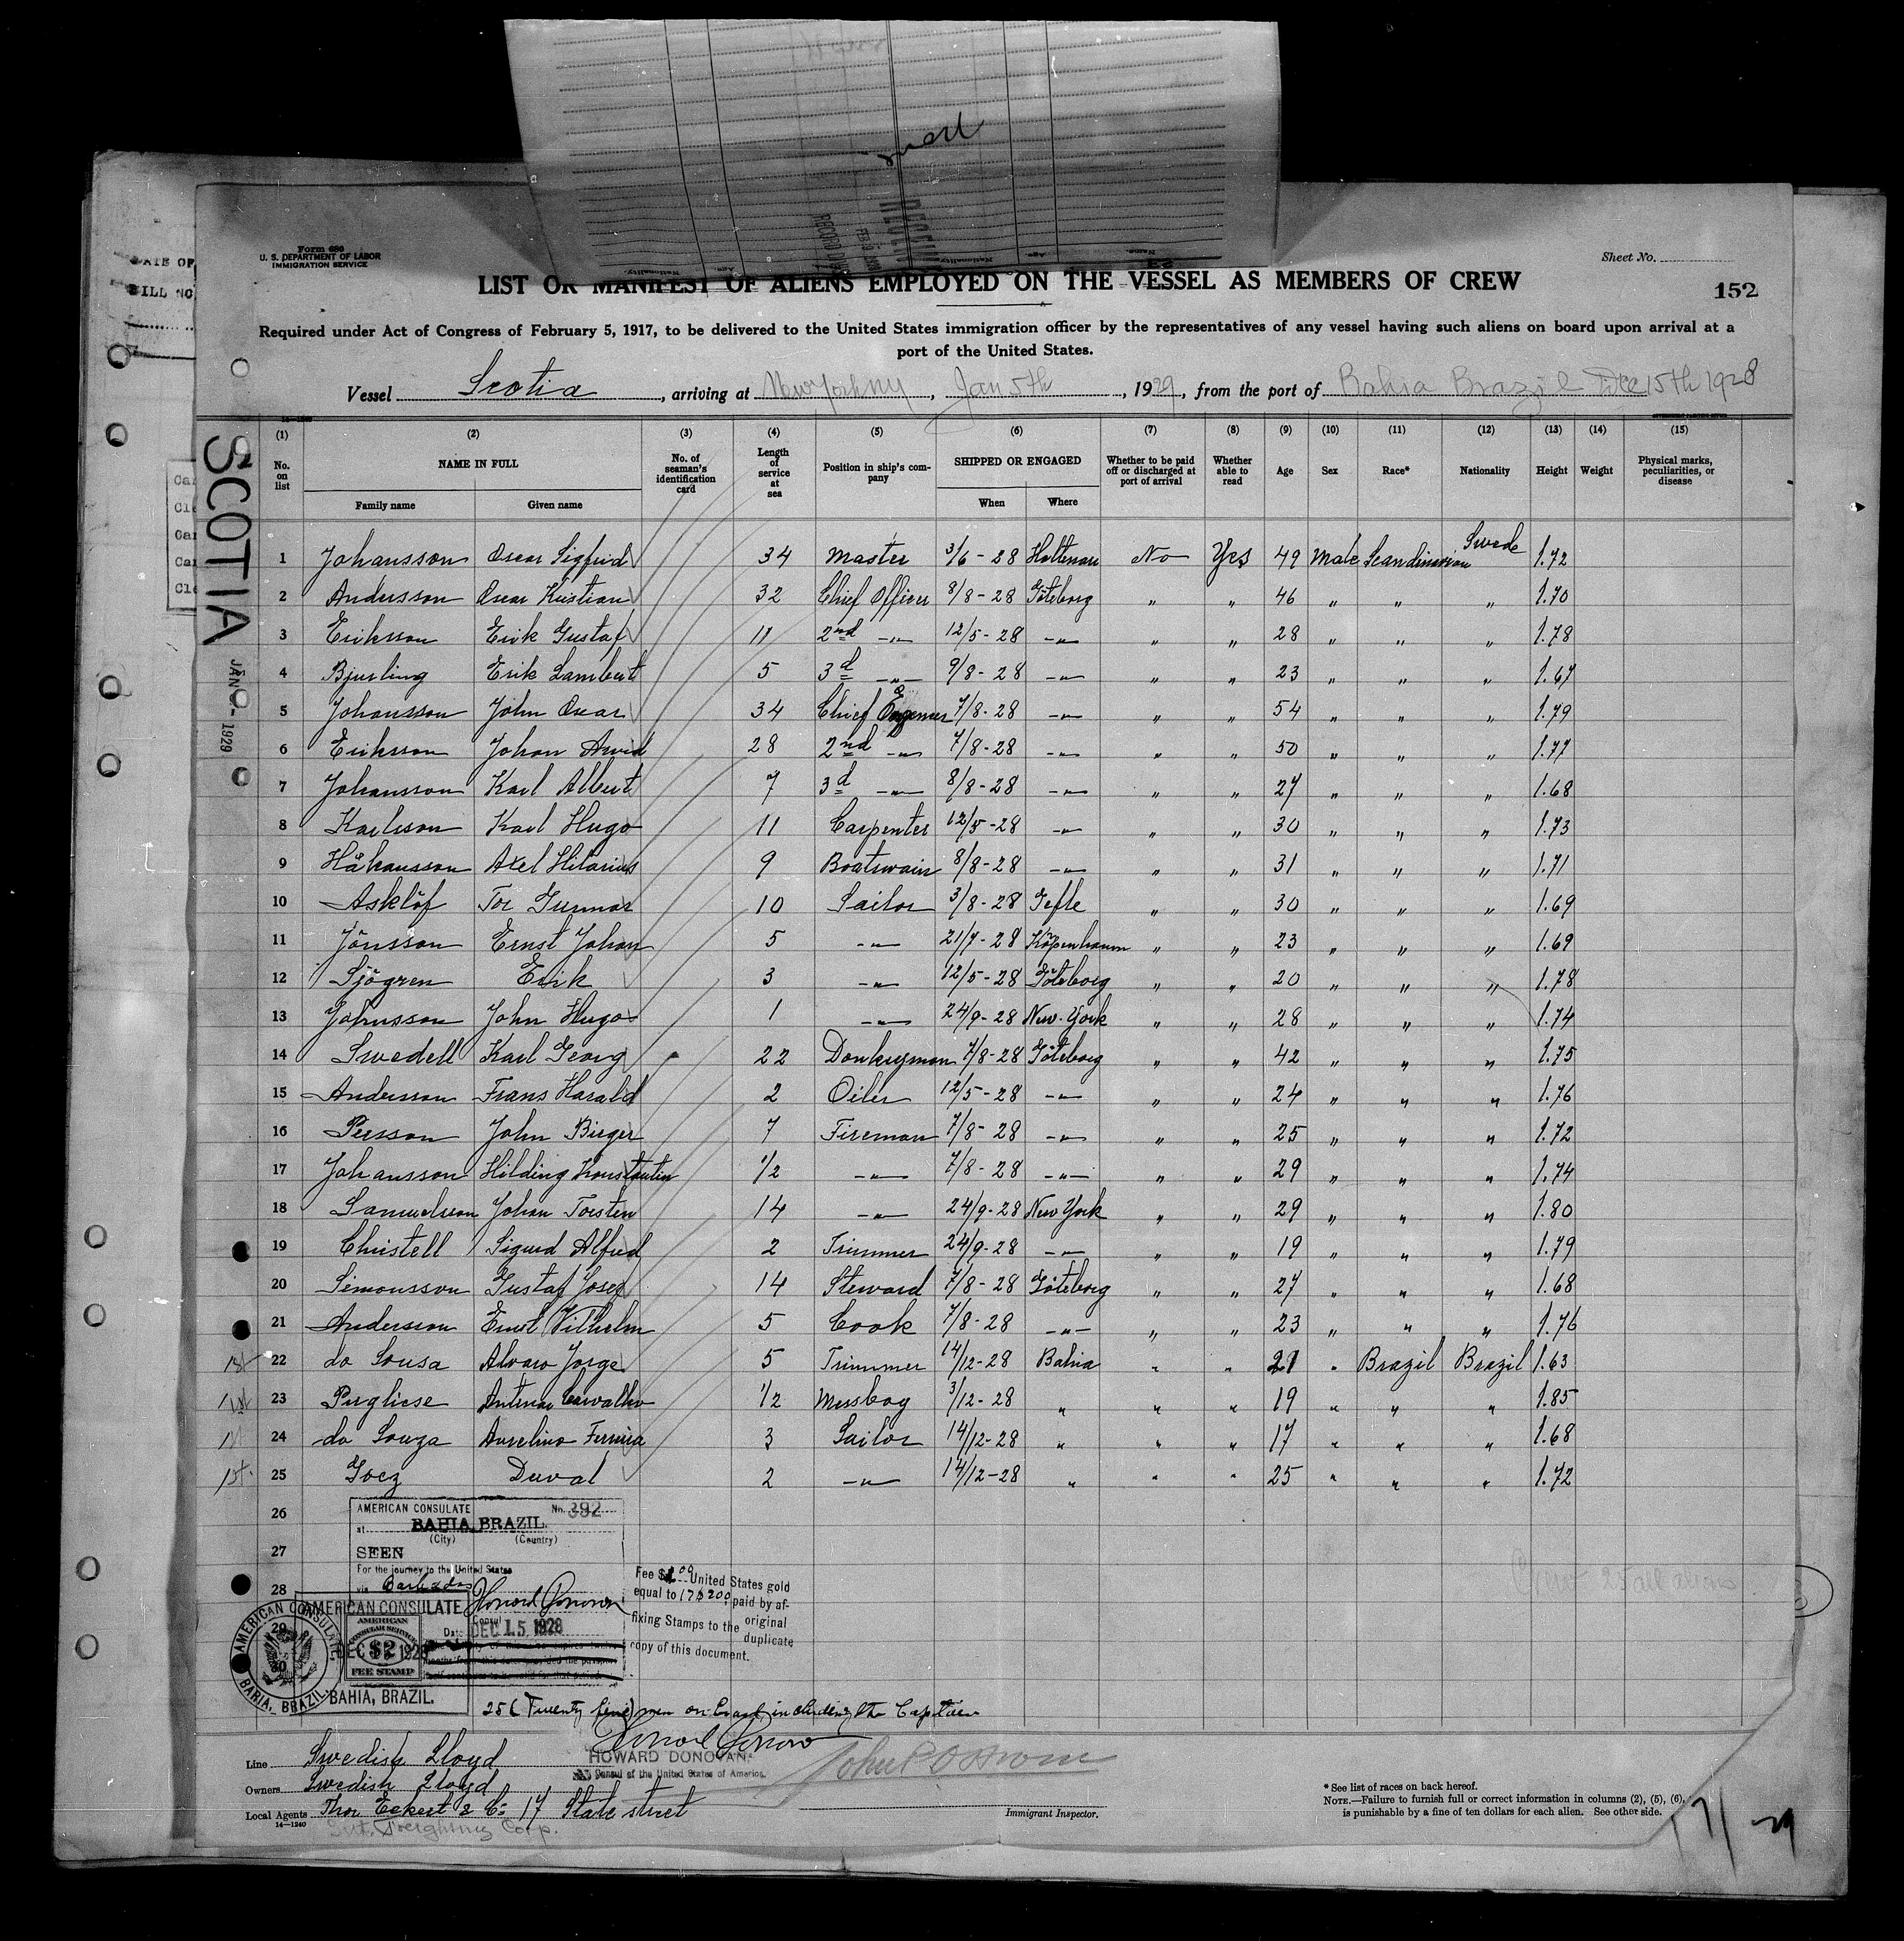 Form 680
U. S. DEPARTMENT OF LABOR
IMMIGRATION SERVICE
Sheet No.
LIST OR MANIFEST OF ALIENS EMPLOYED ON THE VESSEL AS MEMBERS OF CREW
152
Required under Act of Congress of February 5, 1917, to be delivered to the United States immigration officer by the representatives of any vessel having such aliens on board upon arrival at a
port of the United States.
Vessel Scotia, arriving at New York NY, Jan 5th, 1929, from the port of Bahia Brazil Dec 15th 1928
SCOTIA
(1) (2) (3) (4) (5) (6) (7) (8) (9) (10) (11) (12) (13) (14) (15)
No. on list NAME IN FULL No. of seaman's identification card Length of service at sea Position in ship's company SHIPPED OR ENGAGED Whether to be paid off or discharged at port of arrival Whether able to read Age Sex Race* Nationality Height Weight Physical marks, peculiarities, or disease
Family name Given name When Where
1 Johansson Oscar Sigfrid 34 Master 3/6-28 Holtenau No Yes 49 Male Scandinavian Swede 1.72
2 Andersson Oscar Kristian 32 Chief Officer 8/8-28 Göteborg " " 46 " " " 1.70
3 Eriksson Erik Gustaf 11 2nd -"- 12/5-28 -"- " " 28 " " " 1.78
4 Bjurling Erik Lambert 5 3d -"- 9/8-28 -"- " " 23 " " " 1.67
5 Johansson John Oscar 34 Chief Engeneer 7/8-28 -"- " " 54 " " " 1.79
6 Eriksson Johan Arvid 28 2nd -"- 7/8-28 -"- " " 50 " " " 1.77
7 Johansson Karl Albert 7 3d -"- 8/8-28 -"- " " 27 " " " 1.68
8 Karlsson Karl Hugo 11 Carpenter 12/5-28 -"- " " 30 " " " 1.73
9 Håkansson Axel Hilarius 9 Boatswain 8/8-28 -"- " " 31 " " " 1.71
10 Asklöf Tor Gunnar 10 Sailor 3/8-28 Gefle " " 30 " " " 1.69
11 Jönsson Ernst Johan 5 -"- 21/7-28 Köpenhamn " " 23 " " " 1.69
12 Sjögren Erik 3 -"- 12/5-28 Göteborg " " 20 " " " 1.78
13 Johnsson John Hugo 1 -"- 24/9-28 New-York " " 28 " " " 1.74
14 Swedell Karl Georg 22 Donkeyman 7/8-28 Göteborg " " 42 " " " 1.75
15 Andersson Frans Harald 2 Oiler 12/5-28 -"- " " 24 " " " 1.76
16 Persson John Birger 7 Fireman 7/8-28 -"- " " 25 " " " 1.72
17 Johansson Hilding Konstantin 1/2 -"- 7/8-28 -"- " " 29 " " " 1.74
18 Samuelsson Johan Torsten 14 -"- 24/9-28 New York " " 29 " " " 1.80
19 Christell Sigurd Alfred 2 Trimmer 24/9-28 -"- " " 19 " " " 1.79
20 Simonsson Gustaf Josef 14 Steward 7/8-28 Göteborg " " 27 " " " 1.68
21 Andersson Ernst Vilhelm 5 Cook 7/8-28 -"- " " 23 " " " 1.76
1st 22 do Sousa Alvaro Jorge 5 Trimmer 14/12-28 Bahia " " 21 " Brazil Brazil 1.63
1st 23 Pugliese Antenor Carvalho 1/2 Messboy 3/12-28 " " " 19 " " " 1.85
1st 24 do Souza Aurelino Ferreira 3 Sailor 14/12-28 " " " 17 " " " 1.68
1st. 25 Goez Duval 2 -"- 14/12-28 " " " 25 " " " 1.72
26
27
28
29
30
AMERICAN CONSULATE No. 392
at BAHIA, BRAZIL.
(City) (Country)
SEEN
For the journey to the United States
via Barbados
Howard Donovan
Consul
Date DEC 15 1928
Fee $2.00 United States gold
equal to 17$200, paid by af-
fixing Stamps to the original
duplicate
copy of this document.
AMERICAN CONSULATE
AMERICAN CONSULAR SERVICE
$2
FEE STAMP
BAHIA, BRAZIL.
AMERICAN CONSULATE, BAHIA, BRAZIL.
Crew 25 all aliens
25 (Twenty five) men on board, including the Captain
Howard Donovan
HOWARD DONOVAN
Consul of the United States of America.
Line Swedish Lloyd
Owners Swedish Lloyd
Local Agents Thor Eckert & Co 17 State street
14—1240
Immigrant Inspector.
* See list of races on back hereof.
NOTE.—Failure to furnish full or correct information in columns (2), (5), (6),
is punishable by a fine of ten dollars for each alien. See other side.